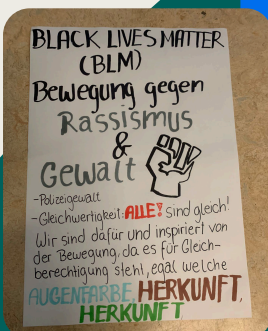 BLACK LIVES MATTER
(BLM)
Bewegung gegen
Rassismus
&
Gewalt
-Polizeigewalt
-Gleichwertigkeit: ALLE! sind gleich!
Wir sind dafür und inspiriert von
der Bewegung, da es für Gleich-
berechtigung steht, egal welche
AUGENFARBE, HERKUNFT,
HERKUNFT